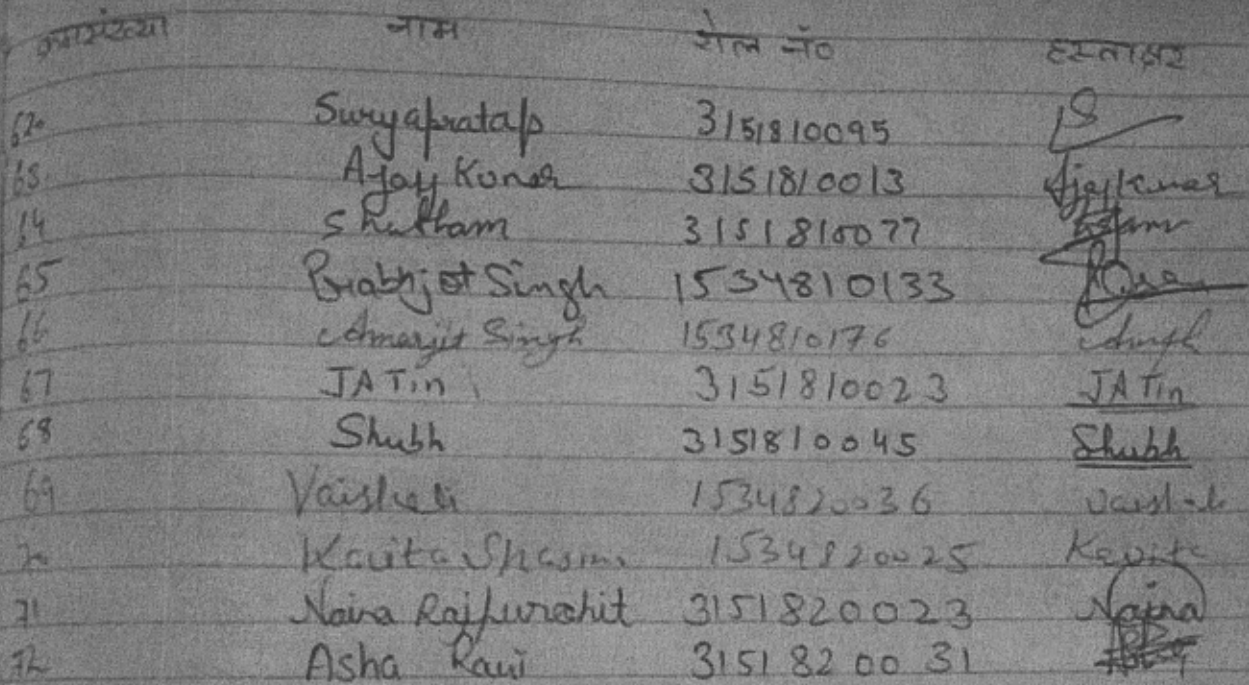 क्रमसंख्या नाम रोल नॉ० हस्ताक्षर
62. Suryapratap 3151810095 S
63. Ajay Kumar 3151810013 Ajaykumar
64 Shubham 3151810077
65 Prabhjot Singh 1534810133
66 Amarjit Singh 1534810176
67 JATin 3151810023 JATin
68 Shubh 3151810045 Shubh
69 Vaishali 1534820036 Vaishali
70 Kavita Sharma 1534820025 Kavita
71 Naina Rajpurohit 3151820023 Naina
72 Asha Ravi 3151820031